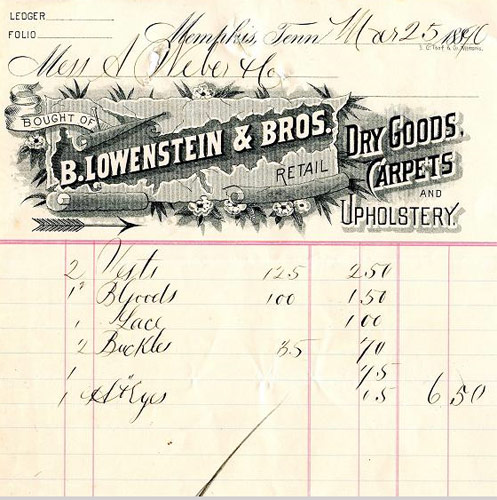 LEDGER
FOLIO
Memphis, Tenn Mar 25 1890
S. C. Toof & Co. Memphis.
Mess A Weber & Co
BOUGHT OF
B. LOWENSTEIN & BROS.
RETAIL
DRY GOODS,
CARPETS
AND
UPHOLSTERY.
2 Vests 125 250
1½ Goods 100 150
1 Lace 100
2 Buckles 35 70
1 75
1 Eyes 05 6 50